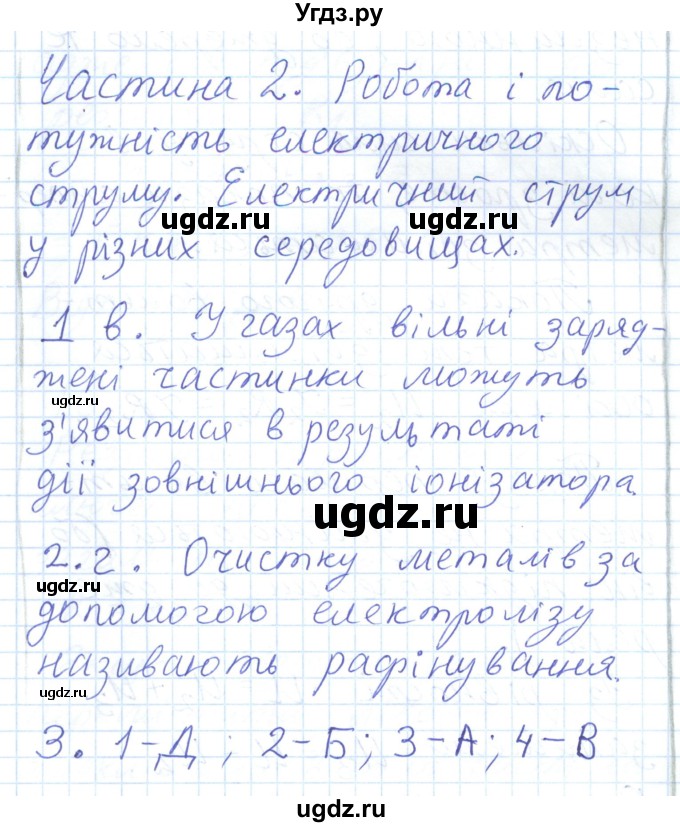 Угдз.ру
Частина 2. Робота і по-
тужність електричного
струму. Електричний струм
ugdz.ru ugdz.ru
у різних середовищах.
1 в. У газах вільні заряд-
жені частинки можуть
ugdz.ru
з'явитися в результаті
дії зовнішнього іонізатора.
ugdz.ru
2.г. Очистку металів за
ugdz.ru
допомогою електролізу
називають рафінування.
ugdz.ru
3. 1-Д; 2-Б; 3-А; 4-В
ugdz.ru